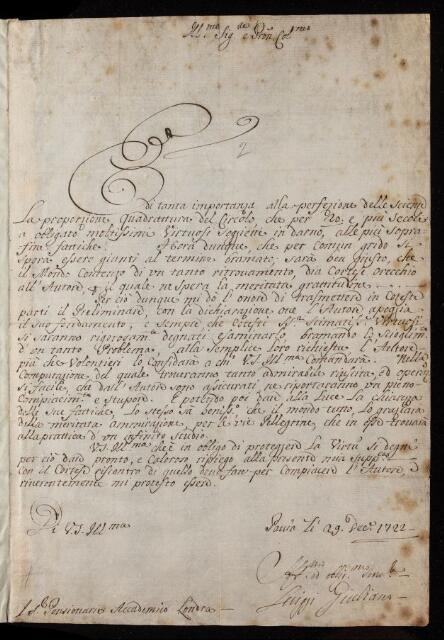 Ill.mo Sig.re e Pron Col.mo
E di tanta importanza alla perfezione delle scienze
La proporzione Quadrattura del Circolo, che per No: e piu Secoli
a obligato moltissimi Virtuosi Segiene in darno, alle piu Sopra-
fine fattiche. Ahora dunque, che per comun grido si
spera essere gionti al termine bramato, sarà ben giusto, che
il Mondo Contenzo di un tanto ritrovamento, dia Cortese orecchio
all' Autore, il quale ne spera la meritata gratitudine
Per cio dunque mi do l'onore di trasmettere in Coteste
parti il Preliminare, con la dichiarazione ove l'Autore apoggia
il suo fondamento, e sempre che Cotesti Virtuosi
si saranno rigorosam. degnati esaminarlo bramando lo
d'un tanto Problema, alla Semplice loro richiesta l'Autore
più che Volentieri lo Confidarà a chi V.S. Ill.ma Comandarà. Nella
Composizione del quale trovaranno tanto admirabile riuscita, ed operaz.
si facile, che dall' Autore sono assicurati ne riportaranno un pieno
Compiacim.to e Stupore. E potendo poi dare alla Luce la chiarezza
delle sue fattiche, Lo stesso sa beniss.o che il mondo tutto Lo graziarà
della meritata ammirazione, per le vie Pellegrine, che in esso trovarà
alla prattica d'un infinito Studio.
V.S. Ill.ma che è in obligo di proteggere la Virtu si degni
per cio dare pronto, e Caloroso ripiego alla presente mia supp.ca
Con il Cortese riscontro di quello deve fare per Compiacere l'Autore, e
riverentemente mi protesto essere.
Di V.S. Ill.ma
Pavia li 29 Dec.e 1722
Luiggi Giuliani
Pensionario Accademico Londra